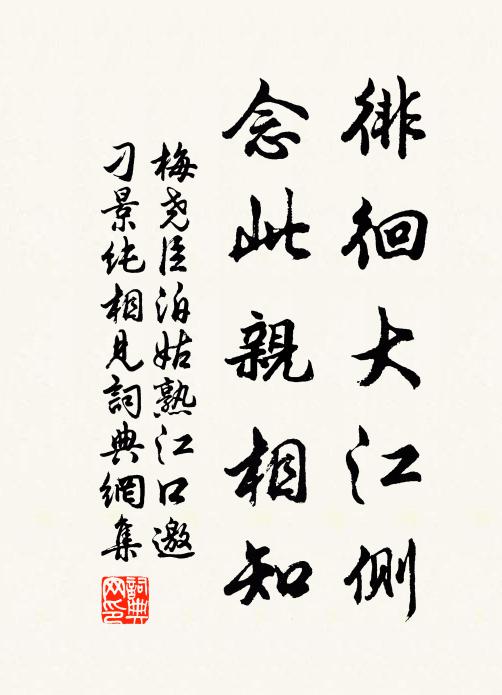 徘徊大江側
念此親相知
梅尧臣泊姑熟江口邀
刁景纯相見詞典網集
詞典网印